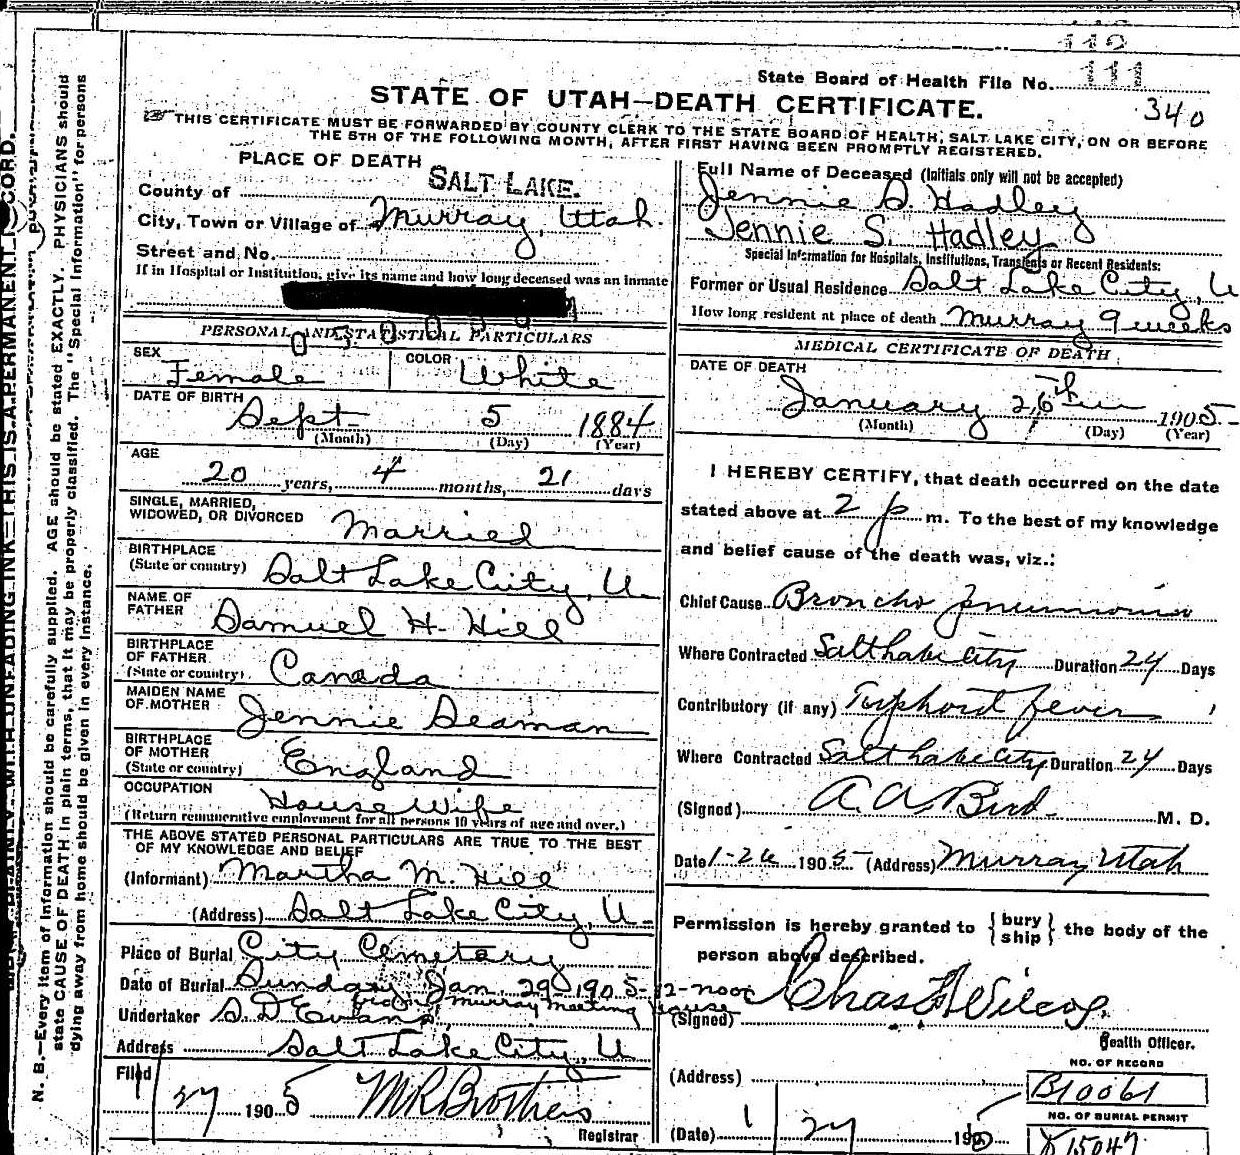 State Board of Health File No. 111
340
STATE OF UTAH—DEATH CERTIFICATE.
THIS CERTIFICATE MUST BE FORWARDED BY COUNTY CLERK TO THE STATE BOARD OF HEALTH, SALT LAKE CITY, ON OR BEFORE
THE 5TH OF THE FOLLOWING MONTH, AFTER FIRST HAVING BEEN PROMPTLY REGISTERED.
N. B.—Every item of information should be carefully supplied. AGE should be stated EXACTLY. PHYSICIANS should
state CAUSE OF DEATH in plain terms, that it may be properly classified. The "Special Information" for persons
dying away from home should be given in every instance.
WITH UNFADING INK—THIS IS A PERMANENT RECORD.
PLACE OF DEATH
County of SALT LAKE.
City, Town or Village of Murray, Utah.
Street and No.
If in Hospital or Institution, give its name and how long deceased was an inmate
PERSONAL AND STATISTICAL PARTICULARS
SEX Female COLOR White
DATE OF BIRTH Sept 5 1884
(Month) (Day) (Year)
AGE
20 years, 4 months, 21 days
SINGLE, MARRIED,
WIDOWED, OR DIVORCED Married
BIRTHPLACE
(State or country) Salt Lake City, U.
NAME OF
FATHER Samuel H. Hill
BIRTHPLACE
OF FATHER
(State or country) Canada
MAIDEN NAME
OF MOTHER Jennie Seaman
BIRTHPLACE
OF MOTHER
(State or country) England
OCCUPATION House Wife
(Return remunerative employment for all persons 10 years of age and over.)
THE ABOVE STATED PERSONAL PARTICULARS ARE TRUE TO THE BEST
OF MY KNOWLEDGE AND BELIEF
(Informant) Martha M. Hill
(Address) Salt Lake City, U.
Place of Burial City Cemetery
Date of Burial Sunday Jan. 29 1905 - 12-noon
from Murray Meeting house
Undertaker S. D. Evans
Address Salt Lake City, U
Filed
1/27 1905 M R Brothers
Registrar
Full Name of Deceased (Initials only will not be accepted)
Jennie S. Hadley
Jennie S. Hadley
Special Information for Hospitals, Institutions, Transients or Recent Residents:
Former or Usual Residence Salt Lake City, U
How long resident at place of death Murray 9 weeks
MEDICAL CERTIFICATE OF DEATH
DATE OF DEATH
January 26th 1905-
(Month) (Day) (Year)
I HEREBY CERTIFY, that death occurred on the date
stated above at 2 p m. To the best of my knowledge
and belief cause of the death was, viz.:
Chief Cause Broncho pneumonia
Where Contracted Salt Lake City Duration 24 Days
Contributory (if any) Typhoid fever
Where Contracted Salt Lake City Duration 24 Days
(Signed) A. A. Bird M. D.
Date 1-26 1905 (Address) Murray Utah
Permission is hereby granted to {bury ship} the body of the
person above described.
(Signed) Chas F Wilcox.
Health Officer.
(Address)
(Date) 1/27 190
NO. OF RECORD
B10061
NO. OF BURIAL PERMIT
15047